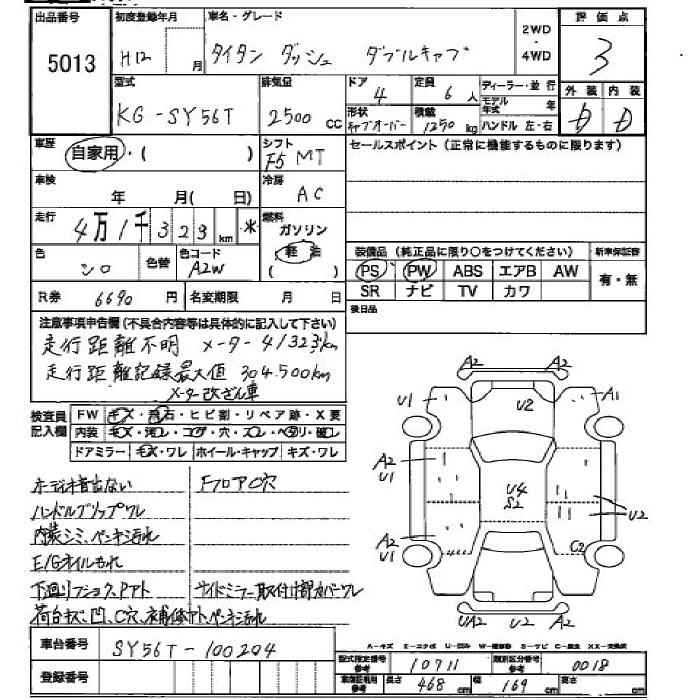 出品番号 5013
初度登録年月 H12 月
車名・グレード タイタン ダッシュ ダブルキャブ
2WD・4WD
評価点 3
型式 KG-SY56T
排気量 2500 cc
ドア 4
定員 6 人
形状 キャブオーバー
積載 1250 kg
ディーラー・並行
モデル年式 年
ハンドル 左・右
外装 D 内装 D
車歴 自家用・( )
シフト F5 MT
セールスポイント(正常に機能するものに限ります)
車検 年 月(日)
冷房 AC
走行 4万1千323km *
燃料 ガソリン 軽油
色 シロ 色替 色コード A2W
装備品(純正品に限り○をつけてください) 新車保証書
PS PW ABS エアB AW 有・無
SR ナビ TV カワ
R券 6690円 名変期限 月 日
後日品
注意事項申告欄(不具合内容等は具体的に記入して下さい)
走行距離不明 メーター 41323km
走行距離記録最大値 304.500km
メーター改ざん車
検査員記入欄
FW キズ・飛石・ヒビ割・リペア跡・X要
内装 キズ・汚レ・コゲ・穴・スレ・ヘタリ・破レ
ドアミラー キズ・ワレ ホイール・キャップ キズ・ワレ
オーディオ音出ない FフロアC穴
ハンドルグリップワレ
内装シミ、ペンキ汚れ
E/Gオイルもれ
下廻りフショク、Pアト サイドミラー取付け部カバーワレ
荷台キズ凹、C穴、補修アト、ペンキ汚れ
A2
U1 U2 A1
A2
U1
U4
S2
U2
A2
U1 C2
UA2 U2 A2
車台番号 SY56T-100204
A-キズ E-エクボ U-凹み W-補修跡 S-サビ C-腐食 XX-交換済
型式指定番号 参考 10711 類別区分番号 参考 0018
登録番号
車庫証明用 参考 長さ 468 cm 幅 169 cm